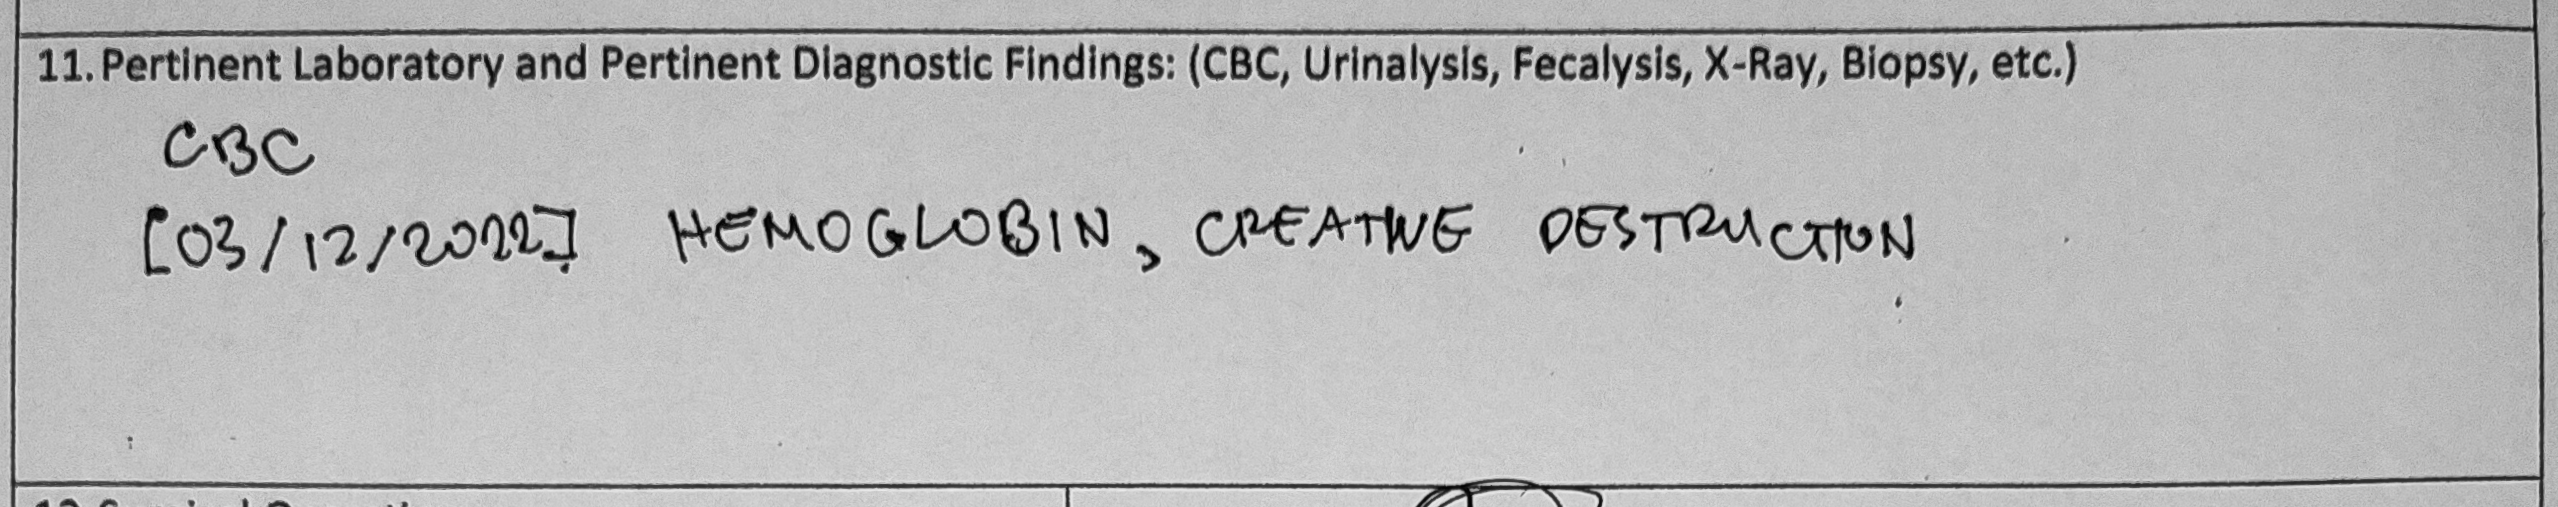 11. Pertinent Laboratory and Pertinent Diagnostic Findings: (CBC, Urinalysis, Fecalysis, X-Ray, Biopsy, etc.)
CBC
[03/12/2022] HEMOGLOBIN, CREATIVE DESTRUCTION